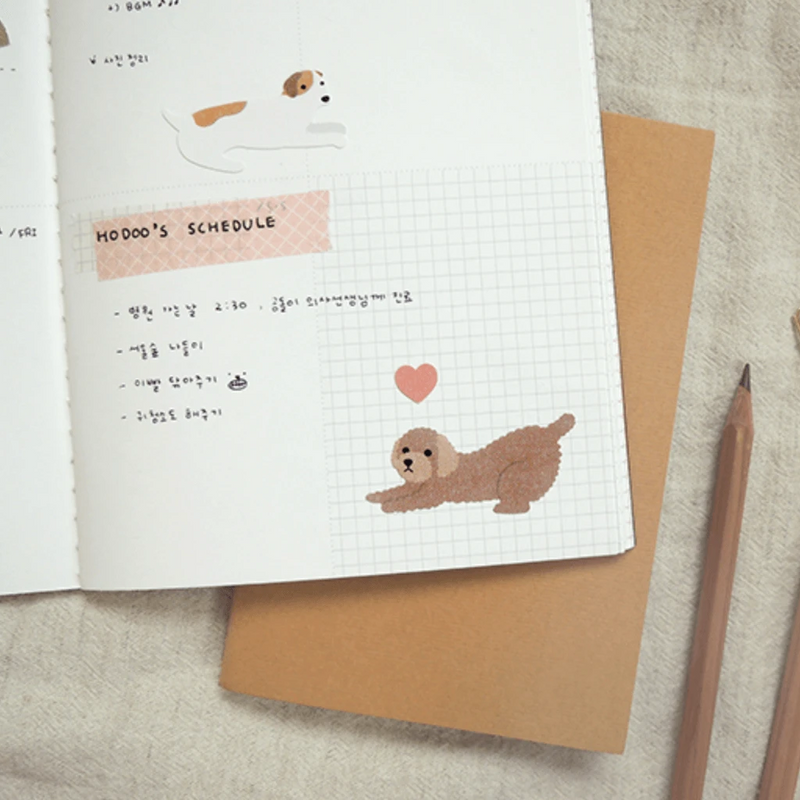 a) BGM ♪♪♪
∨ 사진 정리
/FRI
HODOO'S SCHEDULE
- 병원 가는 날 2:30 , 곰돌이 의사선생님께 진료
- 서울숲 나들이
- 이빨 닦아주기
- 귀청소도 해주기